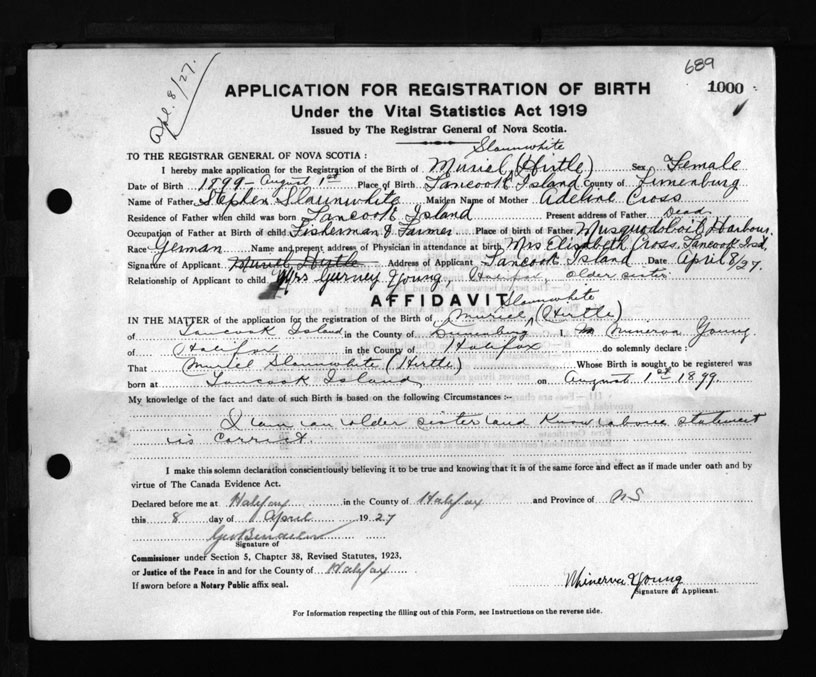 Apl. 8/27.
689
1000
APPLICATION FOR REGISTRATION OF BIRTH
Under the Vital Statistics Act 1919
Issued by The Registrar General of Nova Scotia.
Slaunwhite
TO THE REGISTRAR GENERAL OF NOVA SCOTIA :
I hereby make application for the Registration of the Birth of Muriel (Hirtle) Sex Female
Date of Birth 1899 - August 1st Place of Birth Tancook Island County of Lunenburg
Name of Father Stephen Slaunwhite Maiden Name of Mother Adeline Cross
Residence of Father when child was born Tancook Island Present address of Father Dead
Occupation of Father at Birth of child Fisherman & Farmer Place of birth of Father Musquodoboit Harbour.
Race German Name and present address of Physician in attendance at birth Mrs Elisabeth Cross, Tancook Isd.
Signature of Applicant Muriel Hirtle Address of Applicant Tancook Island Date April 8/27.
Relationship of Applicant to child Mrs Gurney Young, Halifax, older sister
AFFIDAVIT
Slaunwhite
IN THE MATTER of the application for the registration of the Birth of Muriel (Hirtle)
of Tancook Island in the County of Lunenburg I, Minerva Young
of Halifax in the County of Halifax do solemnly declare :
That Muriel Slaunwhite (Hirtle) Whose Birth is sought to be registered was
born at Tancook Island on August 1st 1899.
My knowledge of the fact and date of such Birth is based on the following Circumstances :-
I am an older sister and know above statement
is correct.
I make this solemn declaration conscientiously believing it to be true and knowing that it is of the same force and effect as if made under oath and by
virtue of The Canada Evidence Act.
Declared before me at Halifax in the County of Halifax and Province of NS
this 8 day of April 1927
Signature of
Commissioner under Section 5, Chapter 38, Revised Statutes, 1923.
or Justice of the Peace in and for the County of Halifax
If sworn before a Notary Public affix seal.
Minerva Young
Signature of Applicant.
For Information respecting the filling out of this Form, see Instructions on the reverse side.